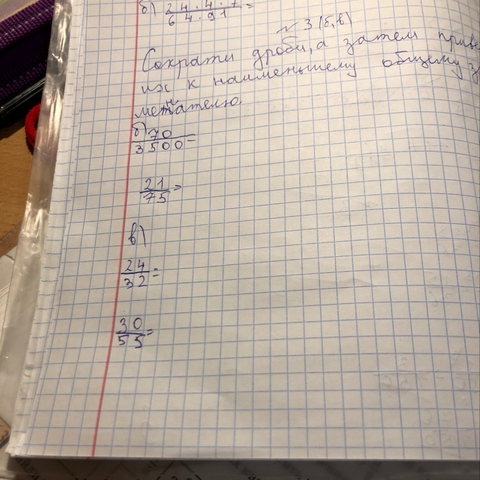 б) 24 · 4 · 7 =
64 · 91
№ 3 (б, в)
Сократи дроби, а затем приве
их к наименьшему общему з
менателю.
б) 70
3500 =
21
75 =
в)
24
32 =
30
55 =